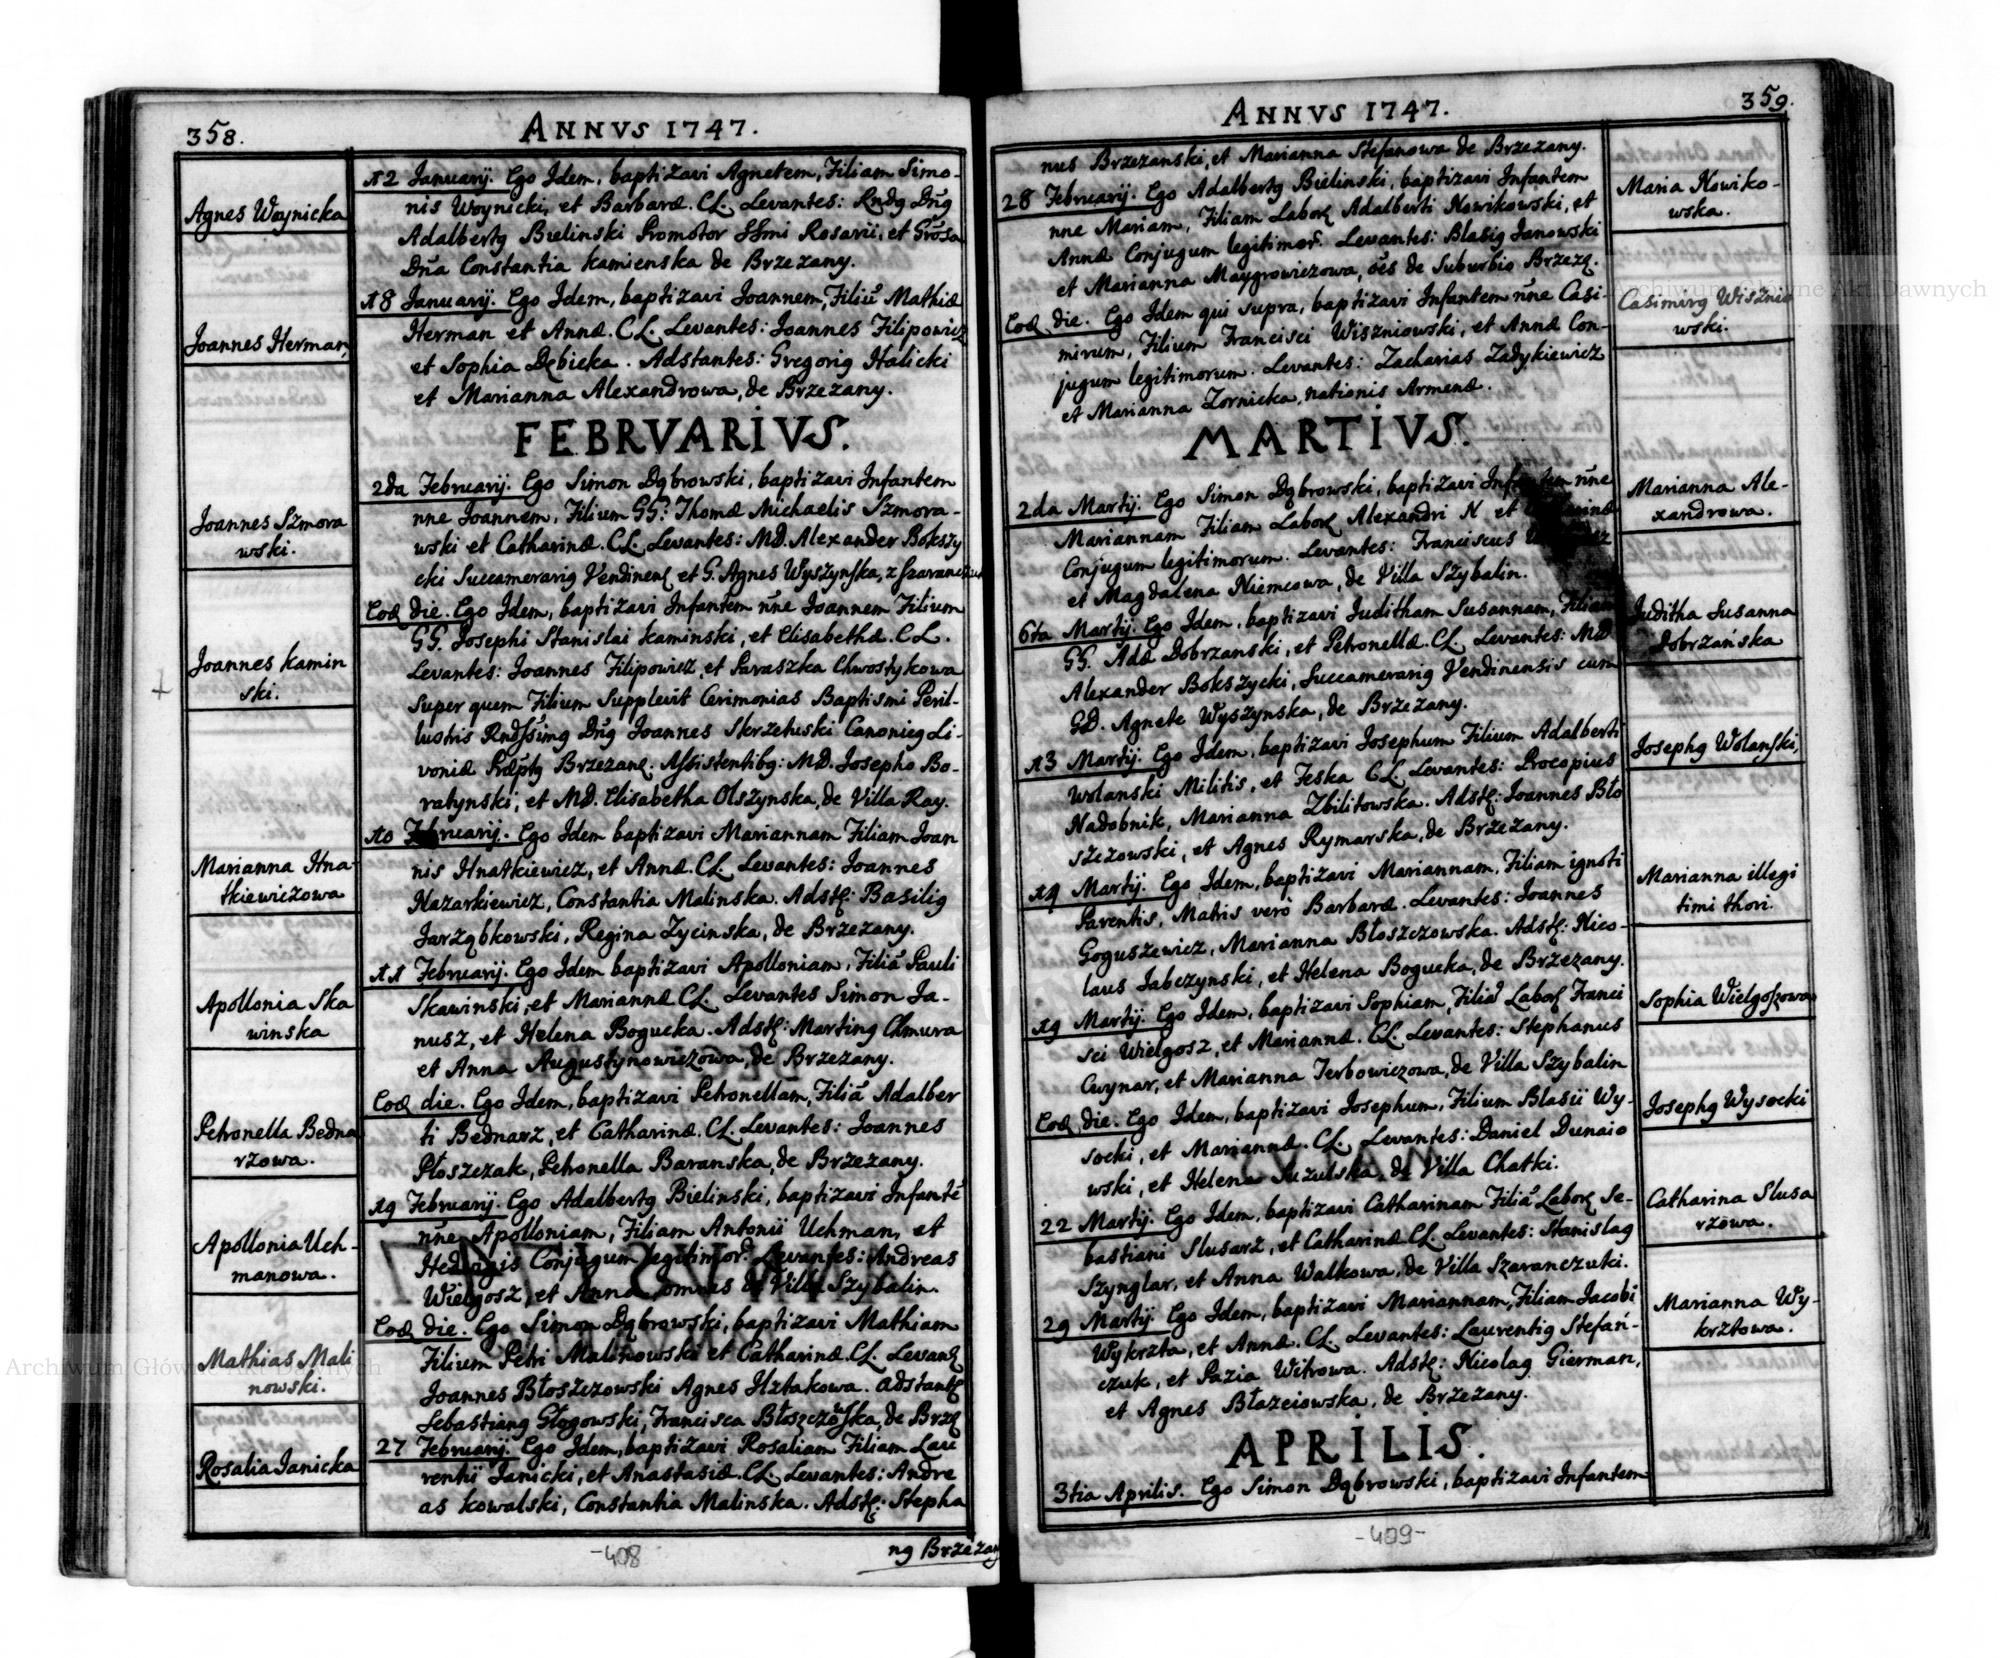 358.
ANNVS 1747.
Agnes Woynicka
Joannes Herman,
Joannes Szmora
wski.
Joannes Kamin
ski.
Marianna Hna-
tkiewiczowa
Apollonia Ska
winska
Petronella Bedna
rzowa.
Apollonia Uch-
manowa.
Mathias Mali
nowski.
Rosalia Janicka
12 Januarij. Ego Idem, baptizavi Agnetem, Filiam Simo-
nis Woynicki, et Barbaræ. CL. Levantes: Rndg Dng
Adalbertg Bielinski Promotor SSmi Rosarii, et Grosa
Dna Constantia Kamienska de Brzezany.
18 Januarij. Ego Idem, baptizavi Joannem, Filiũ Mathiæ
Herman et Annæ. CL. Levantes: Joannes Filipowicz
et Sophia Dębicka. Adstantes: Gregorig Halicki
et Marianna Alexandrowa, de Brzezany.
FEBRVARIVS.
2da Februarij. Ego Simon Dąbrowski, baptizavi Infantem
nne Joannem, Filium GG. Thomæ Michaelis Szmora-
wski et Catharinæ. CL. Levantes: MD. Alexander Bokszy
cki Succamerarig Vendinens et G. Agnes Wyszynska, z Szaranczuk
Eod die. Ego Idem, baptizavi Infantem nne Joannem Filium
GG. Josephi Stanislai Kaminski, et Elisabethæ. CL.
Levantes: Joannes Filipowicz, et Paraszka Chwostykowa
super quem Filium Supplevit Cerimonias Baptismi Peril-
lustris Rndssimg Dng Joannes Skrzetuski Canonicg Li-
voniæ Præptg Brzezan. Assistentibg: MD. Josepho Bo-
ratynski, et MD. Elisabetha Olszynska, de Villa Ray.
10 Februarij. Ego Idem baptizavi Mariannam Filiam Joan
nis Hnatkiewicz, et Annæ. CL. Levantes: Joannes
Nazarkiewicz, Constantia Malinska. Adst: Basilig
Jarząbkowski, Regina Zycinska, de Brzezany.
11 Februarij. Ego Idem baptizavi Apolloniam, Filiã Pauli
Skawinski, et Mariannæ CL. Levantes Simon Ja-
nusz, et Helena Bogucka. Adst: Marting Chmura
et Anna Augustynowiczowa, de Brzezany.
Eod die. Ego Idem, baptizavi Petronellam, Filiã Adalber
ti Bednarz, et Catharinæ. CL. Levantes: Joannes
Płoszczak, Petronella Baranska, de Brzezany.
19 Februarij. Ego Adalbertg Bielinski, baptizavi Infantẽ
nne Apolloniam, Filiam Antonii Uchman, et
Hedvigis Conjugum legitimor. Levantes: Andreas
Wielgosz, et Anna, omnes de Villa Szybalin.
Eod die. Ego Simon Dąbrowski, baptizavi Mathiam
Filium Petri Malinowski et Catharinæ. CL. Levant
Joannes Błoszczowski Agnes Hztakowa. Adstant
Sebastiang Głogowski, Francisca Błoszczowska, de Brz
27 Februarij. Ego Idem, baptizavi Rosaliam Filiam Lau
rentii Janicki, et Anastasiæ. CL. Levantes: Andre
as Kowalski, Constantia Malinska. Adst: Stepha
ng Brzezan
-408
359.
ANNVS 1747.
nus Brzezanski, et Marianna Stefanowa de Brzezany.
28 Februarij. Ego Adalbertg Bielinski, baptizavi Infantem
nne Mariam, Filiam Labor Adalberti Nowikowski, et
Annæ Conjugum legitimor. Levantes: Blasig Janowski
et Marianna Maygrowiczowa, oẽs de Suburbio Brzez.
Eod die. Ego Idem qui supra, baptizavi Infantem nne Casi-
mirum, Filium Francisci Wiszniowski, et Annæ Con-
jugum legitimorum. Levantes: Zacharias Zadykiewicz
et Marianna Zornicka, nationis Armenæ.
MARTIVS.
2da Martij. Ego Simon Dąbrowski, baptizavi Infantem nne
Mariannam Filiam Labor Alexandri N et
Conjugum legitimorum. Levantes: Franciscus
et Magdalena Niemcowa, de Villa Szybalin.
6ta Martij. Ego Idem, baptizavi Juditham Susannam, Filiam
GG. Adæ Dobrzanski, et Petronellæ. CL. Levantes: MD
Alexander Bokszycki, Succamerarig Vendinensis cum
GD. Agnete Wyszynska, de Brzezany.
13 Martij. Ego Idem, baptizavi Josephum Filium Adalberti
Wolanski Militis, et Feska CL. Levantes: Procopius
Nadobnik, Marianna Zbilitowska. Adst: Joannes Bło
szczowski, et Agnes Rymarska, de Brzezany.
19 Martij. Ego Idem, baptizavi Mariannam, Filiam ignoti
Parentis, Matris verò Barbaræ. Levantes: Joannes
Goguszewicz, Marianna Błoszczowska. Adst: Nico-
laus Jabczynski, et Helena Bogucka, de Brzezany.
19 Martij. Ego Idem, baptizavi Sophiam, Filiã Labor Franci
sci Wielgosz, et Mariannæ. CL. Levantes: Stephanus
Cwynar, et Marianna Terbowiczowa, de Villa Szybalin
Eod die. Ego Idem, baptizavi Josephum, Filium Blasii Wy-
socki, et Mariannæ. CL. Levantes: Daniel Dunaio
wski, et Helena Suzulska, de Villa Chatki.
22 Martij. Ego Idem, baptizavi Catharinam Filiã Labor Se-
bastiani Slusarz, et Catharinæ CL. Levantes: Stanislag
Szynglar, et Anna Walkowa, de Villa Szaranczuki.
29 Martij. Ego Idem, baptizavi Mariannam, Filiam Jacobi
Wykrzta, et Annæ. CL. Levantes: Laurentig Stefań-
czuk, et Pazia Witrowa. Adst: Nicolag Gierman,
et Agnes Błazeiowska, de Brzezany.
APRILIS.
3tia Aprilis. Ego Simon Dąbrowski, baptizavi Infantem
Maria Nowiko-
wska.
Casimirg Wisznio
wski.
Marianna Ale-
xandrowa.
Juditha Susanna
Dobrzańska
Josephg Wolanski,
Marianna illegi
timi thori.
Sophia Wielgoszowa
Josephg Wysocki
Catharina Slusa
rzowa.
Marianna Wy-
krztowa.
-409-
Archiwum Główne Akt Dawnych
Archiwum Główne Akt Dawnych